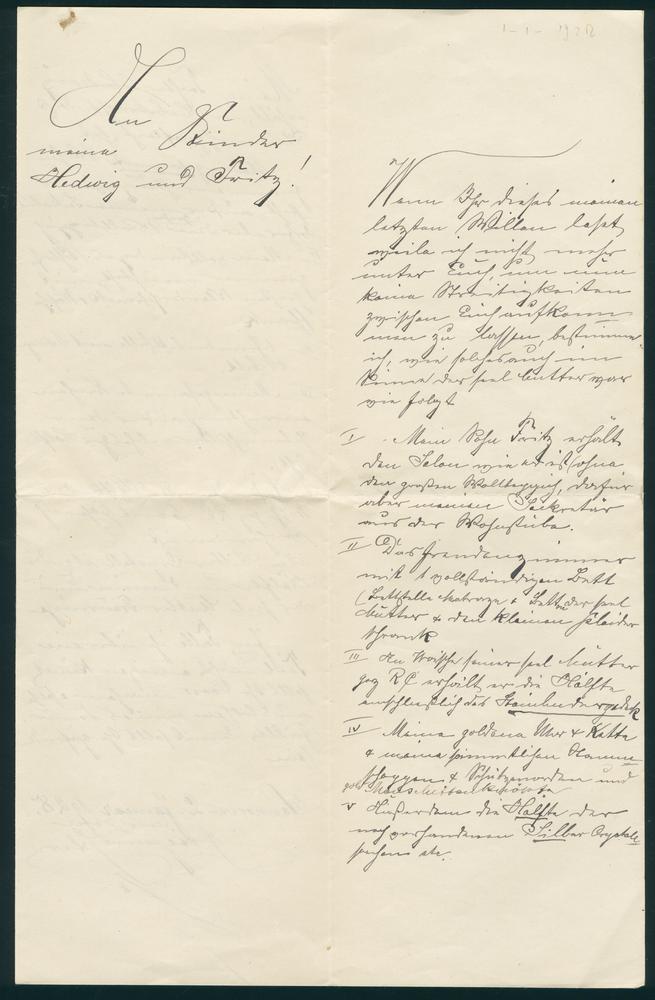 An
meine Kinder
Hedwig und Fritz!
1-1-1928
Wenn Ihr dieses meinen
letzten Willen leset,
weile ich nicht mehr
unter Euch, um nun
keine Streitigkeiten
zwischen Euch aufkom-
men zu lassen, bestimme
ich, wie solches auch im
Sinne der seel Mutter war
wie folgt
I Mein Sohn Fritz erhält
den Salon wie er ist (ohne
den großen Wollteppich, dafür
aber meinen Sekretär
aus der Wohnstube.
II Das Fremdenzimmer
mit 1 vollständigen Bett
(Bettstelle Matraze & Betten der seel
Mutter & den kleinen Kleider
schrank
III An Wäsche seiner seel Mutter
gez R C erhält er die Hälfte
einschließlich des
IV Meine goldene Uhr & Kette
& meine sämmtlichen
& Schützenorden und
gold Manschettenknöpfe
V Außerdem die Hälfte der
noch vorhandenen Silber Crystall-
sachen etc.